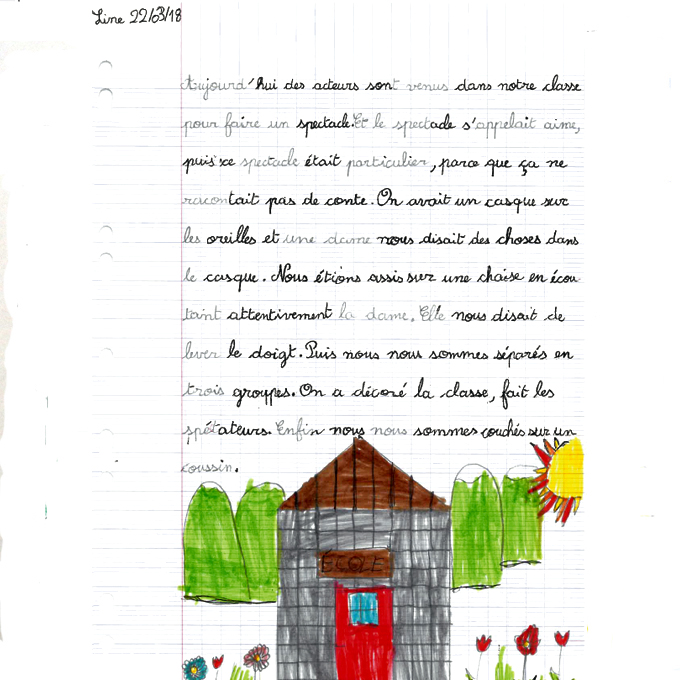 Line 22/03/18
Aujourd'hui des acteurs sont venus dans notre classe
pour faire un spectacle. Et le spectacle s'appelait aime,
puis ce spectacle était particulier, parce que ça ne
racontait pas de conte. On avait un casque sur
les oreilles et une dame nous disait des choses dans
le casque. Nous étions assis sur une chaise en écou
tant attentivement la dame. Elle nous disait de
lever le doigt. Puis nous nous sommes séparés en
trois groupes. On a décoré la classe, fait les
spétateurs. Enfin nous nous sommes couchés sur un
coussin.
ECOLE